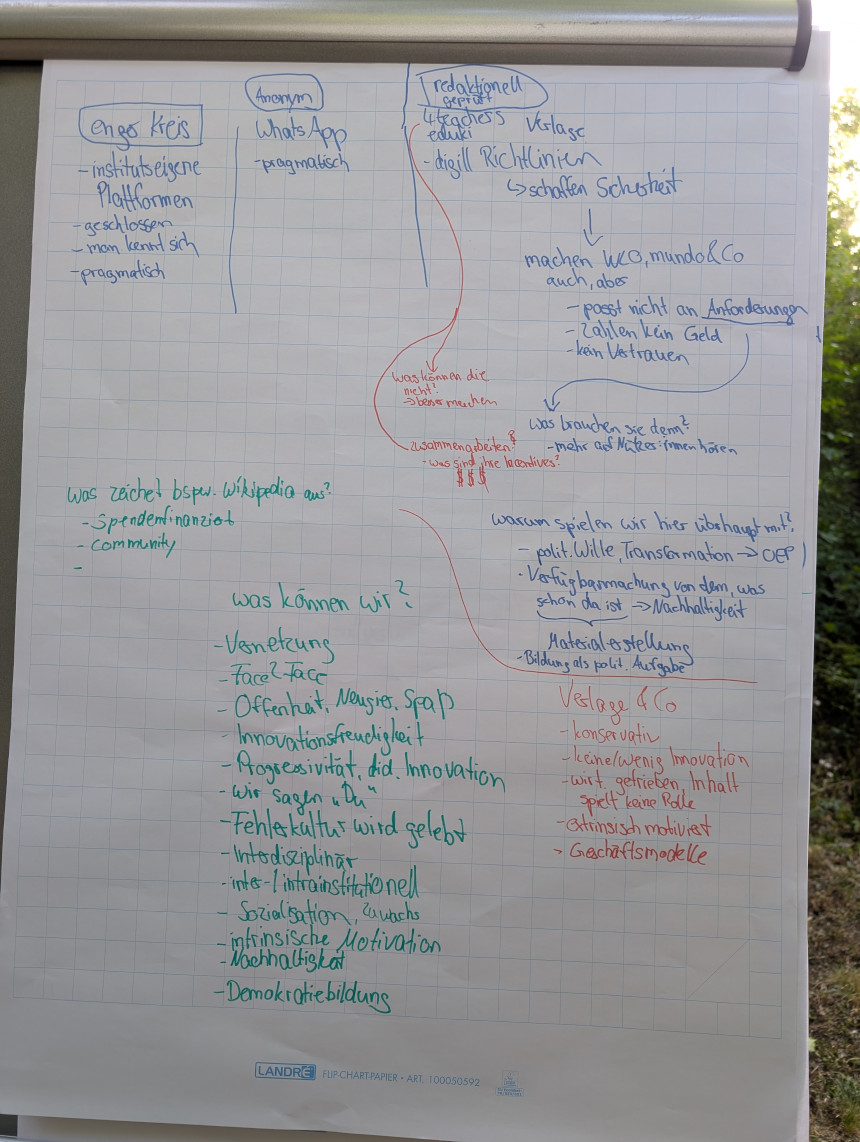 enger Kreis
- institutseigene
Plattformen
- geschlossen
- man kennt sich
- pragmatisch
Anonym
WhatsApp
- pragmatisch
redaktionell
geprüft
4teachers
eduki
Verlage
- digill Richtlinien
↳ schaffen Sicherheit
machen WLO, mundo & Co
auch, aber
- passt nicht an Anforderungen
- zahlen kein Geld
- kein Vertrauen
was können die
nicht?
→ besser machen
was brauchen sie denn?
- mehr auf Nutzer:innen hören
Zusammenarbeiten?
- was sind ihre Incentives?
$ $ $
Was zeichet bspw. Wikipedia aus?
- Spendenfinanziert
- Community
-
warum spielen wir hier überhaupt mit?
- polit. Wille, Transformation → OEP
- Verfügbarmachung von dem, was
schon da ist → Nachhaltigkeit
Materialerstellung
- Bildung als polit. Aufgabe
was können wir?
- Vernetzung
- Face2Face
- Offenheit, Neugier, Spaß
- Innovationsfreudigkeit
- Progressivität, did. Innovation
- wir sagen „Du“
- Fehlerkultur wird gelebt
- Interdisziplinär
- inter-/intrainstitutionell
- Sozialisation, Zuwachs
- intrinsische Motivation
- Nachhaltigkeit
- Demokratiebildung
Verlage & Co
- konservativ
- keine/wenig Innovation
- wirt. getrieben, Inhalt
spielt keine Rolle
- extrinsisch motiviert
> Geschäftsmodelle
LANDRÉ FLIP-CHART-PAPIER • ART. 100050592